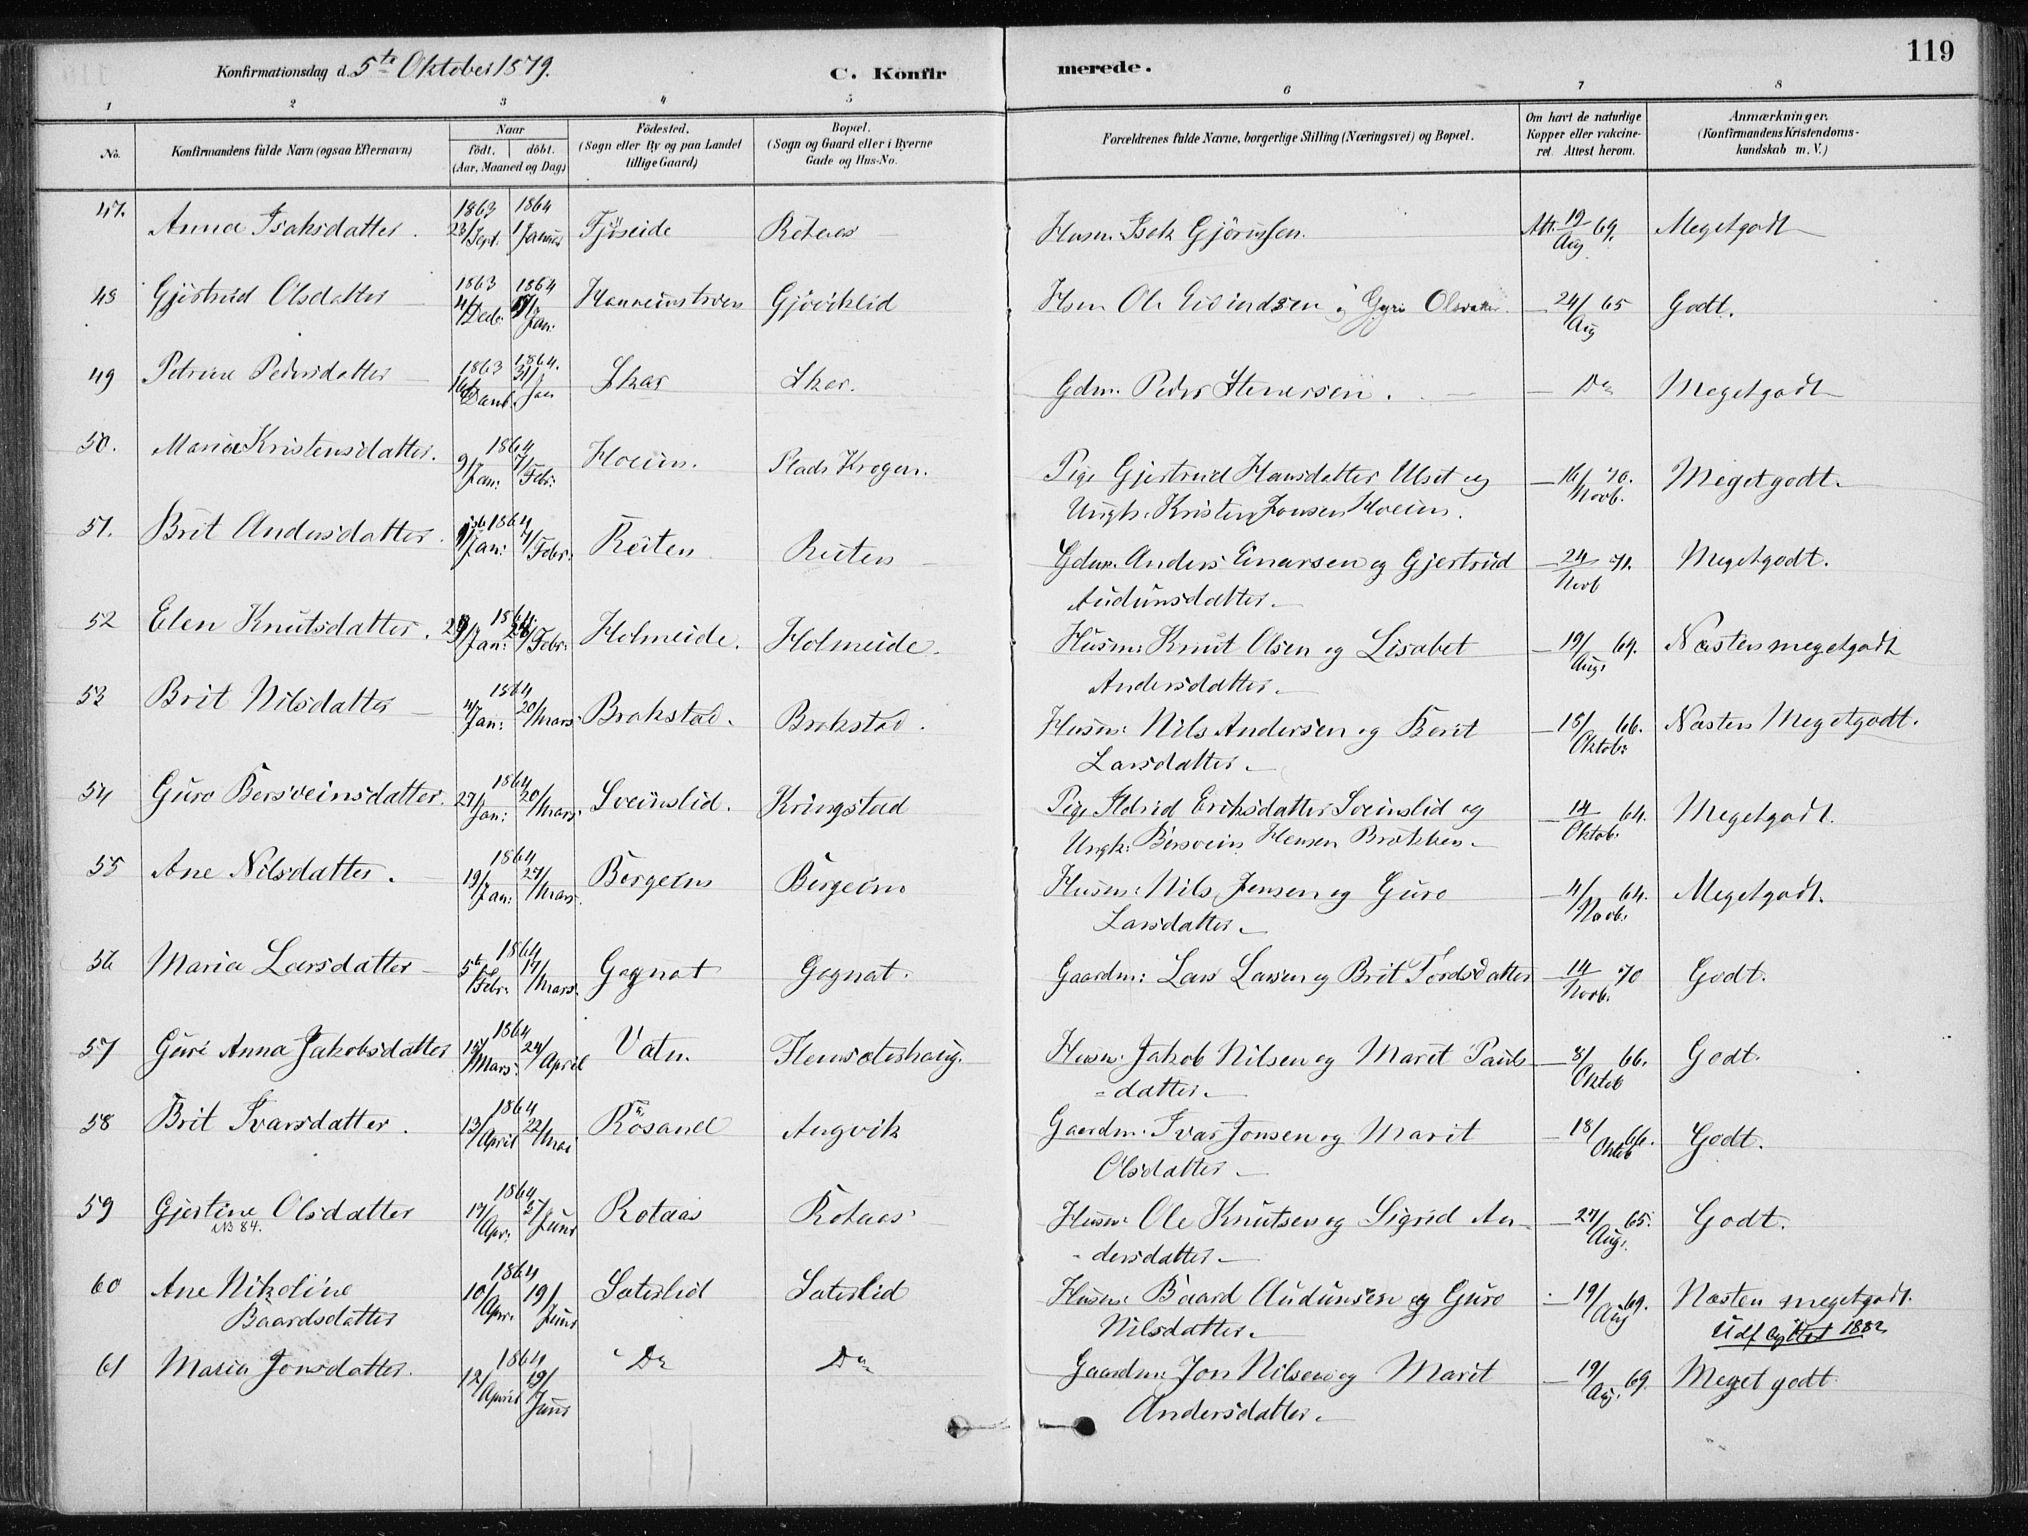 119
Konfirmationsdag d. 5te Oktober 1879. C. Konfirmerede.
1 2 3 4 5 6 7 8
No. Konfirmandens fulde Navn (ogsaa Efternavn) Naar født. døbt. (Aar, Maaned og Dag) Fødested. (Sogn eller By og paa Landet tillige Gaard) Bopæl. (Sogn og Gaard eller i Byerne Gade og Hus-No. Forældrenes fulde Navne, borgerlige Stilling (Næringsvei) og Bopæl. Om havt de naturlige Kopper eller vakcineret. Attest herom. Anmærkninger. (Konfirmandens Kristendomskundskab m. V.)
47. Anna Isaksdatter. 1863 23/Sept. 1864 1/Januar Tjøseide Rotaas Husm. Isak Gjørusen. Att. 19/Aug 69. Megetgodt
48 Gjertrud Olsdatter 1863 4/Decb. 1864 /Jan. Gjøviklid Hsm Ole Eivindsen og Gyri Olsdatter. 24/Aug 65 Godt.
49 Petrine Pedersdatter 1863 1864. 31/Jan Skar Skar. Gdm. Peder Stenersen. Do Megetgodt
50. Maria Kristensdatter. 1864 9/Jan: 7/Febr: Hoeim. Plads Krogen. Pige Gjertrud Hansdatter Ulset og
Ungk. Kristen Jonsen Hoeim. 16/Novb. 70. Megetgodt.
51. Brit Andersdatter. 1864 /Jan: /Febr: Reiten Reiten Gdm. Anders Einarsen og Gjertrud
Audunsdatter. 24/Novb 71. Megetgodt.
52 Elen Knutsdatter. 1864 /Jan: 28/Febr: Holmeide. Holmeide. Husm: Knut Olsen og Lisabet
Andersdatter. 19/Aug. 69. Næsten megetgodt
53 Brit Nilsdatter 1864 4/Jan: 20/Mars. Brakstad. Brakstad. Husm: Nils Andersen og Berit
Larsdatter. 15/Oktob: 66. Næsten Megetgodt.
54 Guro Bersveinsdatter. 1864 27/Jan: 20/Mars. Sveinslid. Kringstad Pige Ildrid Eriksdatter Sveinslid og
Ungk: Bersvein Hansen Brakken. 14/Oktob. 64. Megetgodt.
55 Ane Nilsdatter. 1864 19/Jan: 27/Mars. Bergeim Bergeim Husm: Nils Jensen og Guro
Larsdatter. 4/Novb. 64. Megetgodt.
56 Maria Larsdatter 1864 5te/Febr: 17/Mars. Gagnat Gagnat. Gaardm: Lars Larsen og Brit Tordsdatter 14/Novb. 70 Godt.
57 Guri Anna Jakobsdatter 1864 15/Mars. 24/April Vatn. Husm. Jakob Nilsen og Marit Pauls
=datter. 8/Oktob 66. Godt.
58 Brit Ivarsdatter. 1864 13/April 22/Mai Røsand Angvik Gaardm. Ivar Jonsen og Marit
Olsdatter 18/Oktob 66. Godt.
59 Gjertine Olsdatter 1864 17/Apr: 5/Juni Rotaas Rotaas Husm: Ole Knutsen og Sigrid An-
dersdatter. 27/Aug. 65. Godt.
NB 84.
60 Ane Nikoline
Baardsdatter 1864 10/Apr. 19/Juni Sæterlid Sæterlid Husm: Baard Audunsen og Guro
Nilsdatter. 19/Aug 69. Næsten megetgodt.
Udflyttet 1882
61 Maria Jonsdatter. 1864 12/April 19/Juni Do Do Gaardm. Jon Nilsen og Marit
Andersdatter. 19/Aug. 69. Meget godt